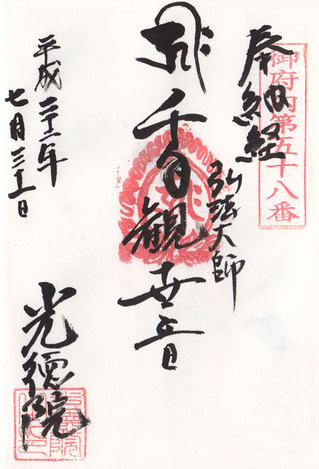 御府内第五十八番
奉納経
弘法大師
千手観世音
平成二十二年
七月三十一日
光徳院